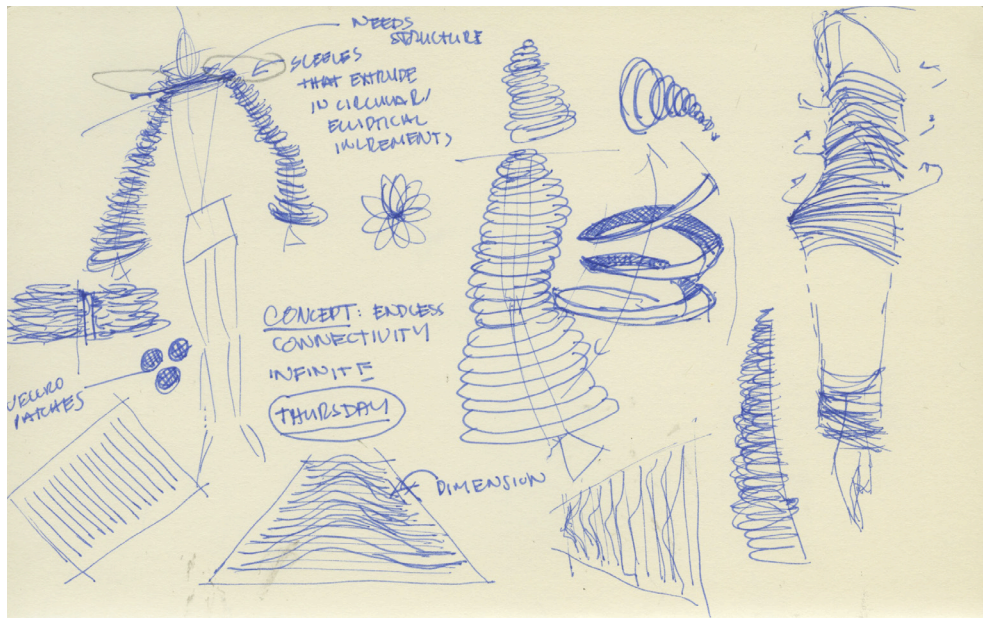 NEEDS
STRUCTURE
SLEEVES
THAT EXTRUDE
IN CIRCULAR/
ELLIPTICAL
INCREMENTS
CONCEPT: ENDLESS
CONNECTIVITY
INFINITE
THURSDAY
VELCRO
PATCHES
DIMENSION